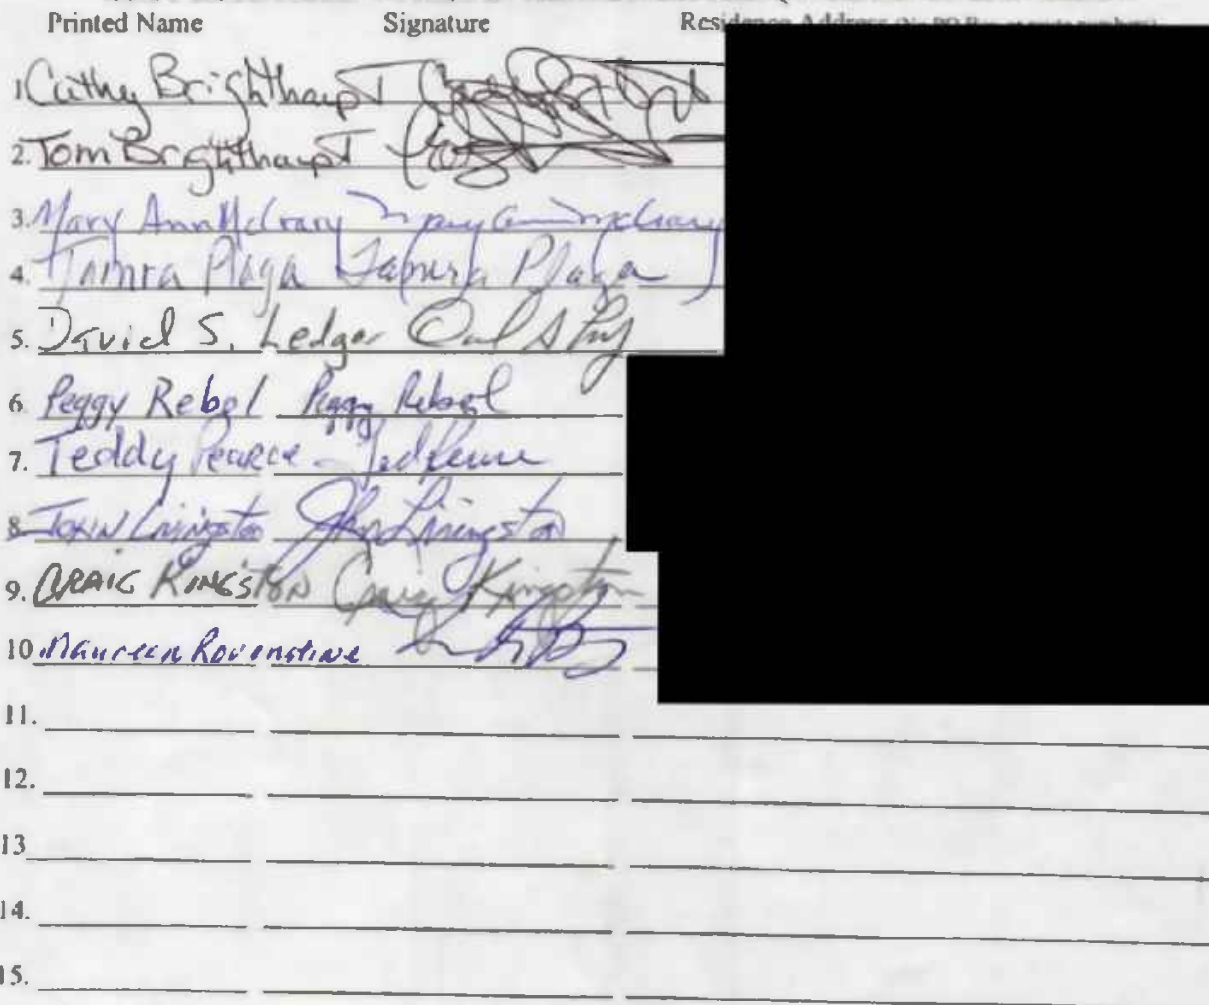 Printed Name Signature Residence Address
1. Cathy Brighthaupt
2. Tom Brighthaupt
3. Mary Ann McCrary Mary Ann McCrary
4. Tamra Plaga Tamra Plaga
5. David S. Ledger
6. Peggy Rebol Peggy Rebol
7. Teddy Pearce - Ted Pearce
8. John Livingston John Livingston
9. CRAIG KINGSTON Craig Kingston
10. Maureen Rovenstine
11.
12.
13
14.
15.